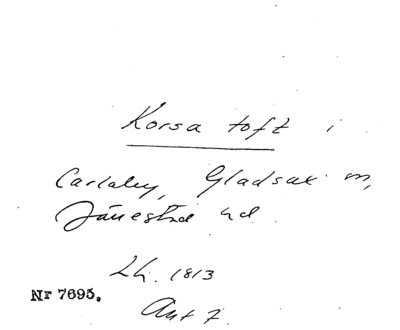 Korsa toft i
Carlaby, Gladsax m,
Jänestad hd.
Lh. 1813
Nr 7695.
Akt 7